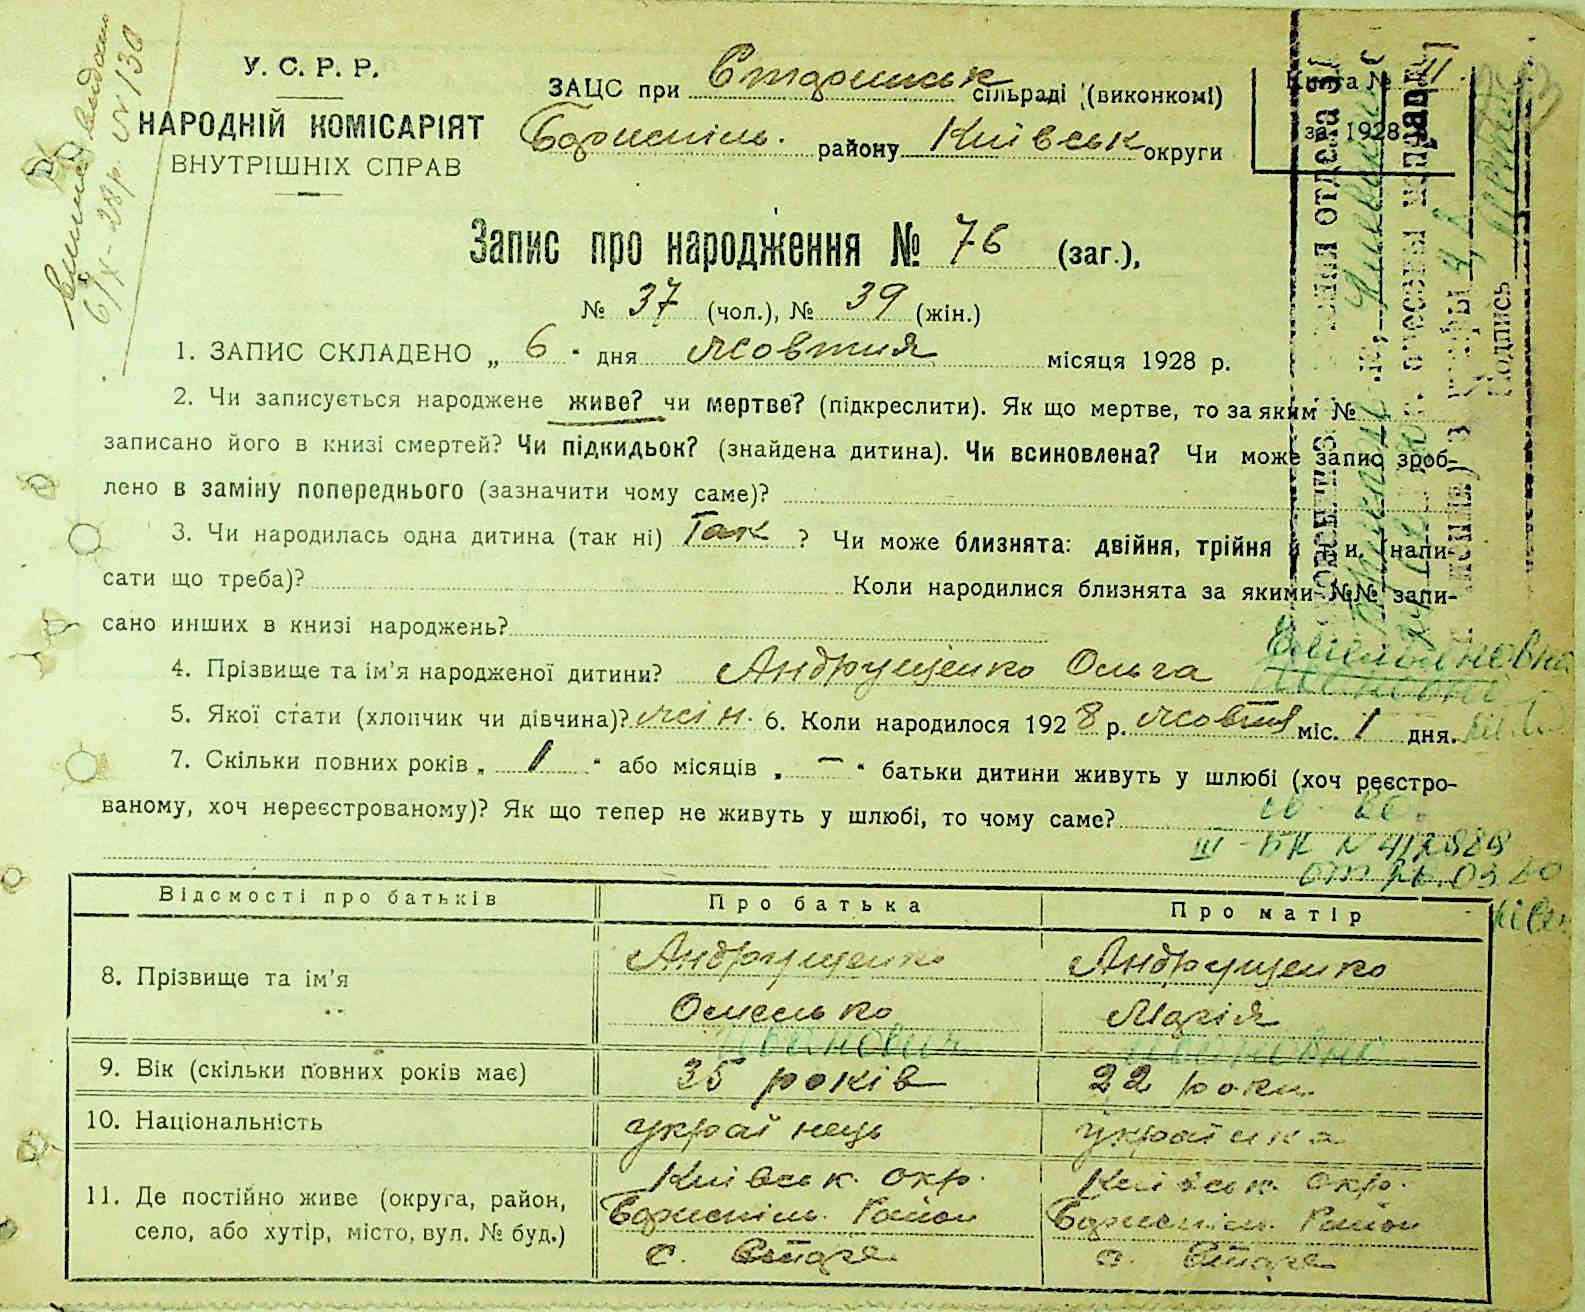 У. С. Р. Р.
НАРОДНІЙ КОМІСАРІЯТ
ВНУТРІШНІХ СПРАВ
6/X - 28р. N 130
ЗАЦС при Старинськ сільраді (виконкомі)
Бориспіль. району Київськ округи
Книга № II.
за 1928
Запис про народження № 76 (заг.),
№ 37 (чол.), № 39 (жін.)
1. ЗАПИС СКЛАДЕНО „ 6 " дня жовтня місяця 1928 р.
2. Чи записується народжене живе? чи мертве? (підкреслити). Як що мертве, то за яким №
записано його в книзі смертей? Чи підкидьок? (знайдена дитина). Чи всиновлена? Чи може запис зроб-
лено в заміну попереднього (зазначити чому саме)?
3. Чи народилась одна дитина (так ні) Так ? Чи може близнята: двійня, трійня й и. (напи-
сати що треба)? Коли народилися близнята за якими №№ запи-
сано инших в книзі народжень?
4. Прізвище та ім'я народженої дитини? Андрущенко Ольга Емельяновна
5. Якої стати (хлопчик чи дівчина)? жін. 6. Коли народилося 1928 р. жовтня міс. 1 дня.
7. Скільки повних років „ 1 " або місяців „ — " батьки дитини живуть у шлюбі (хоч реєстро-
ваному, хоч нереєстрованому)? Як що тепер не живуть у шлюбі, то чому саме?
III - БК N
Відомості про батьків Про батька Про матір
8. Прізвище та ім'я Андрущенко Андрущенко
Омелько Марія
Иванович Ивановна
9. Вік (скільки повних років має) 35 років 22 роки
10. Національність українець українка
11. Де постійно живе (округа, район, Київськ. окр. Київськ. окр.
село, або хутір, місто, вул. № буд.) Бориспіль. Район Бориспіль. Район
с. Старе с. Старе
Подпись